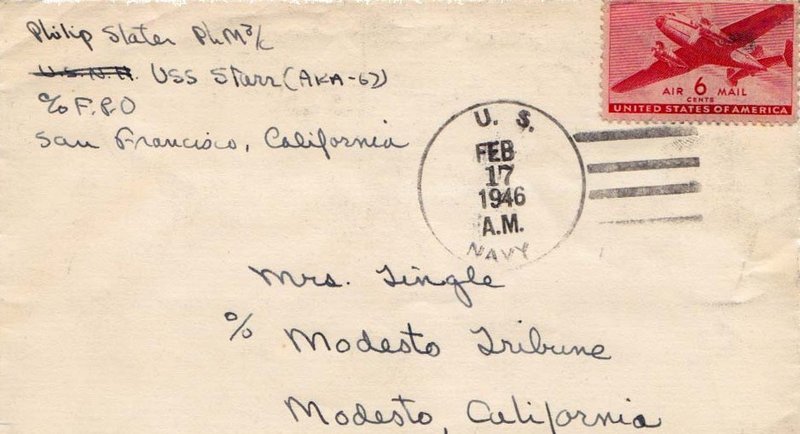 Philip Slater PhM 3/c
U.S.N.R. USS Starr (AKA-67)
c/o F.P.O
San Francisco, California
AIR 6 MAIL
CENTS
UNITED STATES OF AMERICA
U. S.
FEB
17
1946
A.M.
NAVY
Mrs. Tingle
c/o Modesto Tribune
Modesto, California